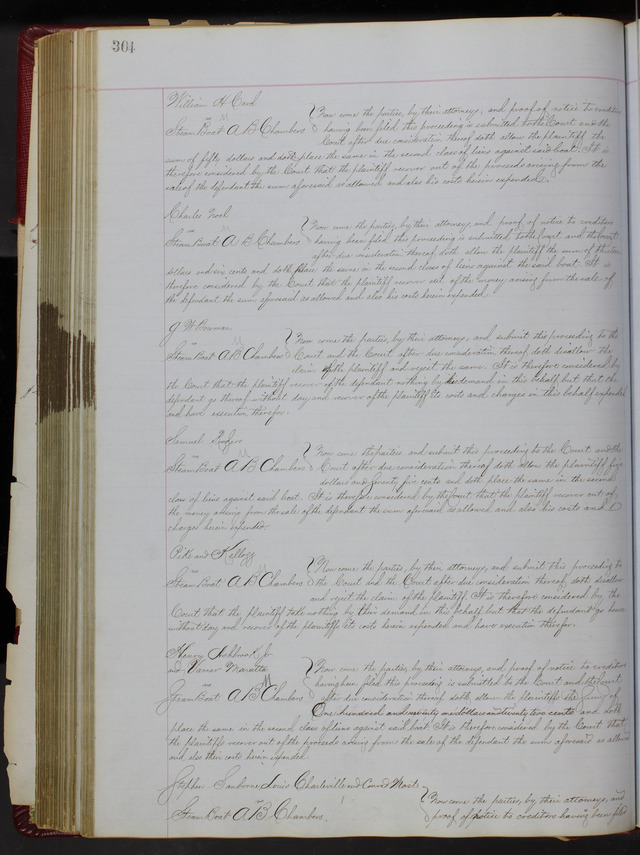 304
William H Card
vs
Steam Boat A B Chambers
Now come the parties, by their attorneys, and proof of notice to creditors
having been filed this proceeding is submitted to the Court and the
Court after due consideration thereof doth allow the plaintiff the
sum of fifty dollars and doth place the same in the second class of liens against said boat. It is
therefore considered by the Court that the plaintiff recover out of the proceeds arising from the
sale of the defendant the sum aforesaid as allowed and also his costs herein expended.
Charles Noel
vs
Steam Boat A B Chambers
Now come the parties, by their attorneys, and proof of notice to creditors
having been filed this proceeding is submitted to the Court and the Court
after due consideration thereof, doth allow the plaintiff the sum of
dollars and six cents and doth place the same in the second class of liens against the said boat. It is
therefore considered by the Court that the plaintiff recover out of the money arising from the sale of
the defendant the sum aforesaid as allowed and also his costs herein expended.
G W Bowman
vs
Steam Boat A B Chambers
Now come the parties, by their attorneys, and submit this proceeding to the
Court and the Court after due consideration thereof doth disallow the
claim of the plaintiff and reject the same. It is therefore considered by
the Court that the plaintiff recover of the defendant nothing by his demand in this behalf but that the
defendant go thereof without day and recover of the plaintiff its costs and charges in this behalf expended
and have execution therefor.
Samuel
vs
Steam Boat A B Chambers
Now come the parties and submit this proceeding to the Court and the
Court after due consideration thereof doth allow the plaintiff five
dollars and seventy five cents and doth place the same in the second
class of liens against said boat. It is therefore considered by the Court that the plaintiff recover out of
the money arising from the sale of the defendant the sum aforesaid as allowed and also his costs and
charges herein expended.
Pike and Kellogg
vs
Steam Boat A B Chambers
Now come the parties, by their attorneys, and submit this proceeding to
the Court and the Court after due consideration thereof, doth disallow
and reject the claim of the plaintiff. It is therefore considered by the
Court that the plaintiff take nothing by their demand in this behalf but that the defendant go hence
without day and recover of the plaintiffs its costs herein expended and have execution therefor.
Henry Ashbrook Jr
and Varner Marietta
vs
Steam Boat A B Chambers
Now come the parties, by their attorneys, and proof of notice to creditors
having been filed this proceeding is submitted to the Court and the Court
after due consideration thereof, doth allow the plaintiffs the sum of
One hundred and seventy dollars and twenty two cents and doth
place the same in the second class of liens against said boat. It is therefore considered by the Court that
the plaintiffs recover out of the proceeds arising from the sale of the defendant the sum aforesaid as allowed
and also their costs herein expended.
Stephen Sanborne, Louis Charleville and Conrad
vs
Steam Boat A B Chambers.
Now come the parties, by their attorneys, and
proof of notice to creditors having been filed